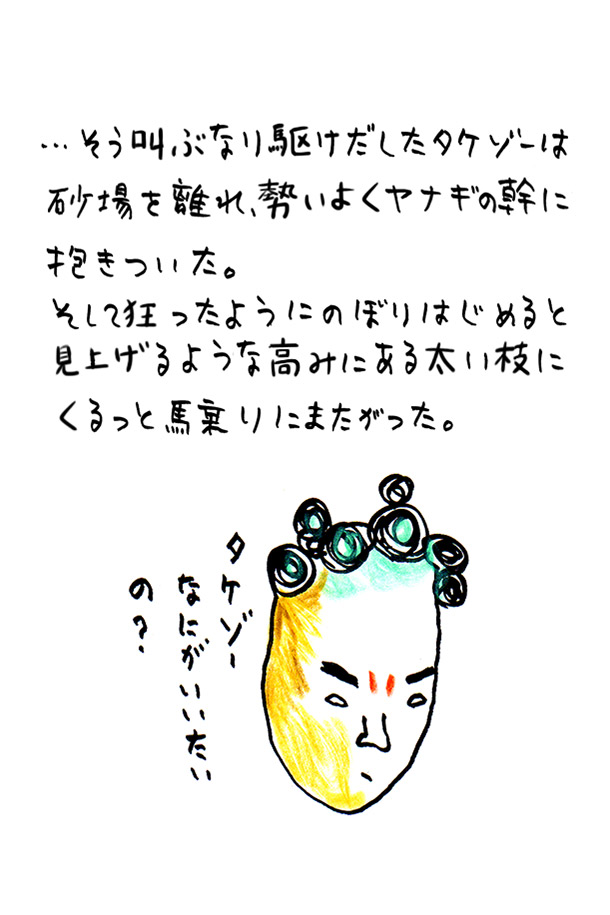 …そう叫ぶなり駆けだしたタケゾーは
砂場を離れ、勢いよくヤナギの幹に
抱きついた。
そして狂ったようにのぼりはじめると
見上げるような高みにある太い枝に
くるっと馬乗りにまたがった。
タケゾー
なにがいいたい
の?